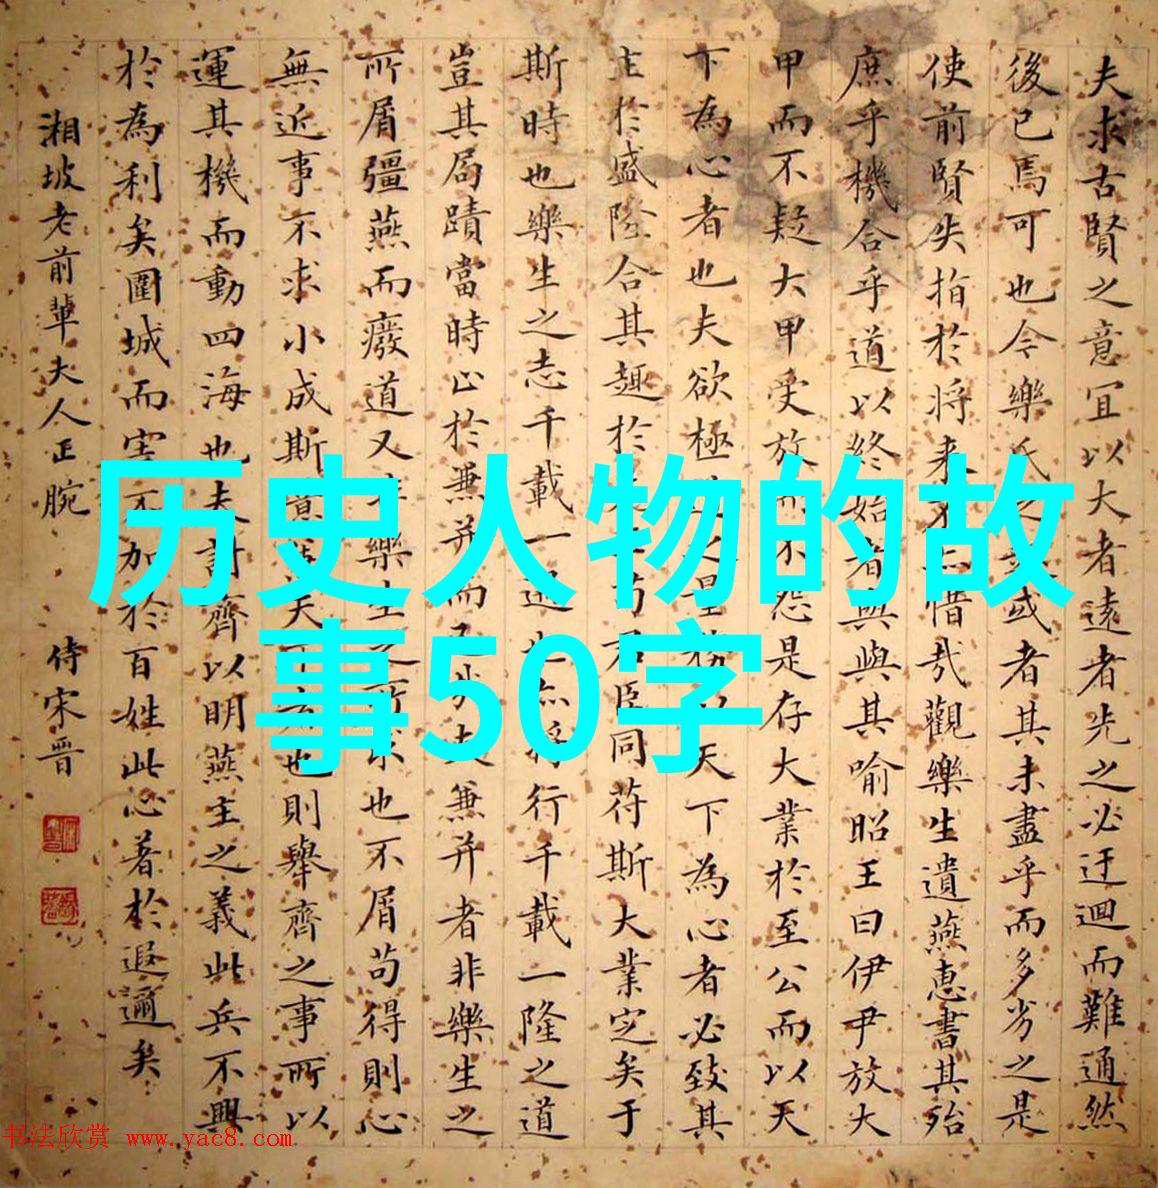 夫求古賢之意宜以大者遠者先之必迂迴而難通然
後已馬可也今樂氏之或者其未盡乎而多劣之是
使前賢失指於將來不惜哉觀樂生遺燕惠書其殆
庶乎機合乎道以終始者與與其喻昭王曰伊尹放大
甲而不疑大甲受放而不怨是存大業於至公而以天
下為心者也夫欲極之量務以天下為心者必致其
主於盛隆合其趣於苟君臣同苻斯大業定矣于
斯時也樂生之志千載一遇也亦將行千載一隆之道
豈其局蹟當時止於兼并而已夫兼并者非樂生之
所屑彊燕而廢道又非樂生之所求也不屑苟得則心
無近事不求小成斯意天下者也則舉齊之事所以
運其機而動四海也夫討齊以明燕主之義此兵不興
於為利矣圍城而害不加於百姓此心著於遐邇矣
湘坡老前輩夫人正腕 侍宋晋
历史人物的故
事50字
书法欣赏 www.yac8.com